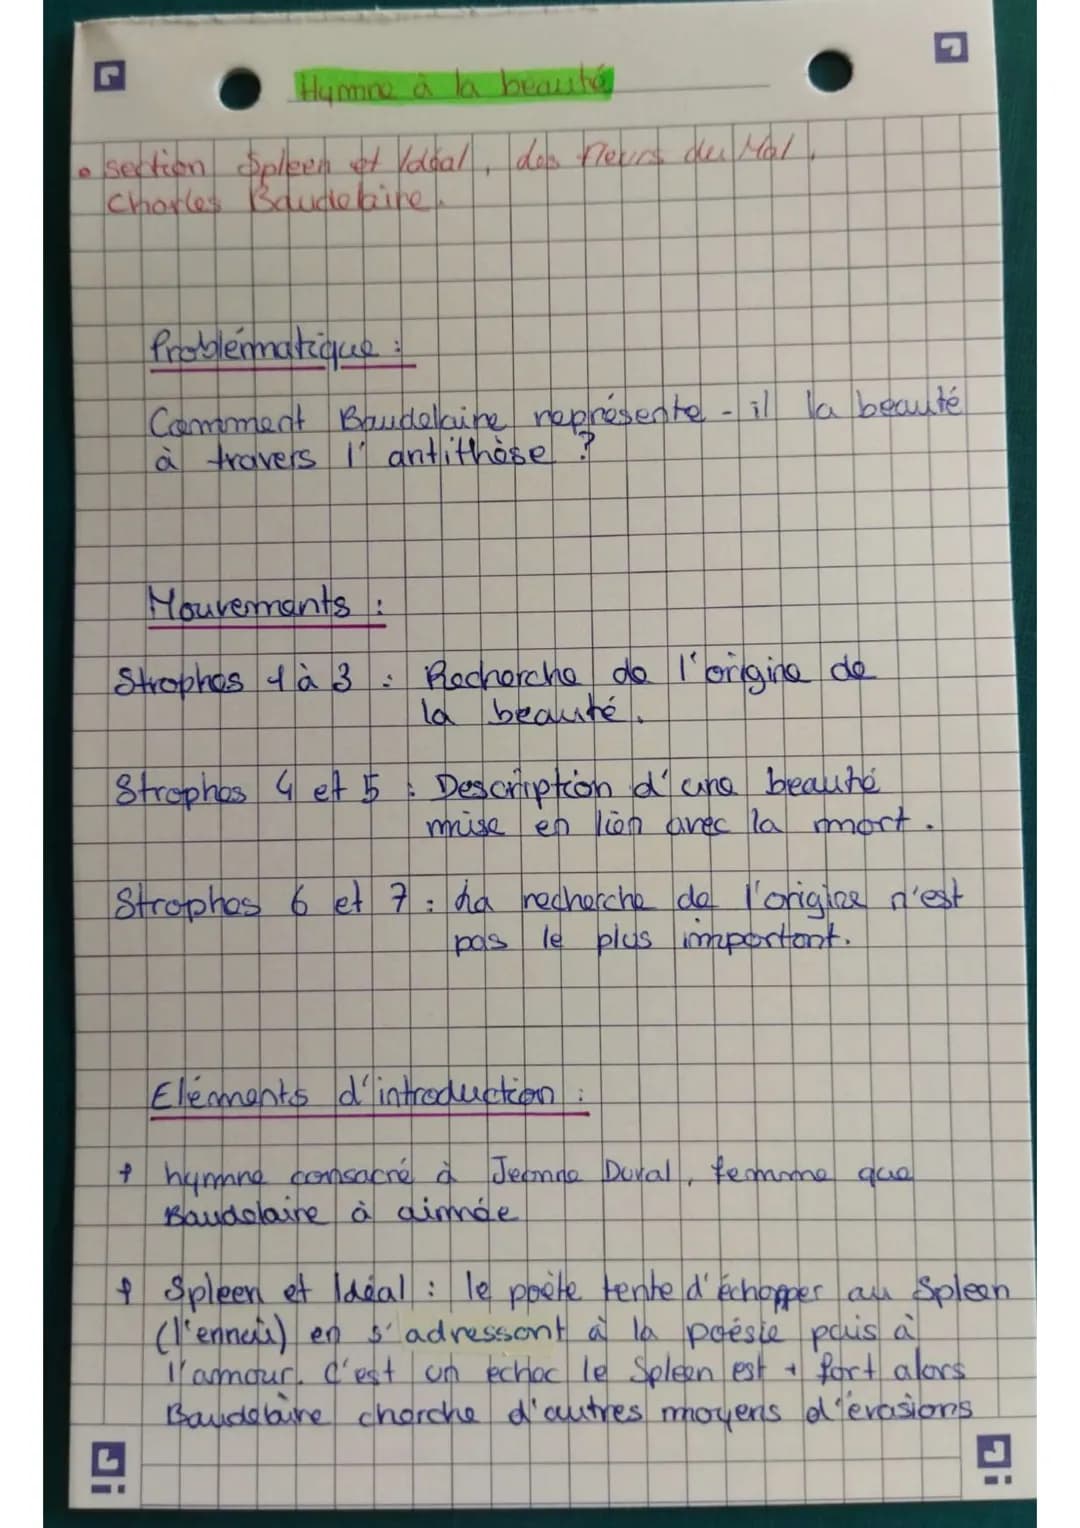 Hymne à la beauté
• section Spleen et Idéal, des Fleurs du Mal,
Charles Baudelaire.
Problématique :
Comment Baudelaire représente-il la beauté
à travers l'antithèse ?
Mouvements :
Strophes 1 à 3 : Recherche de l'origine de
la beauté.
Strophes 4 et 5 : Description d'une beauté
mise en lien avec la mort.
Strophes 6 et 7 : La recherche de l'origine n'est
pas le plus important.
Eléments d'introduction :
+ hymne consacré à Jeanne Duval, femme que
Baudelaire à aimée
+ Spleen et Idéal : le poète tente d'échapper au Spleen
(l'ennui) en s'adressant à la poésie puis à
l'amour. C'est un échec le Spleen est + fort alors
Baudelaire cherche d'autres moyens d'évasions